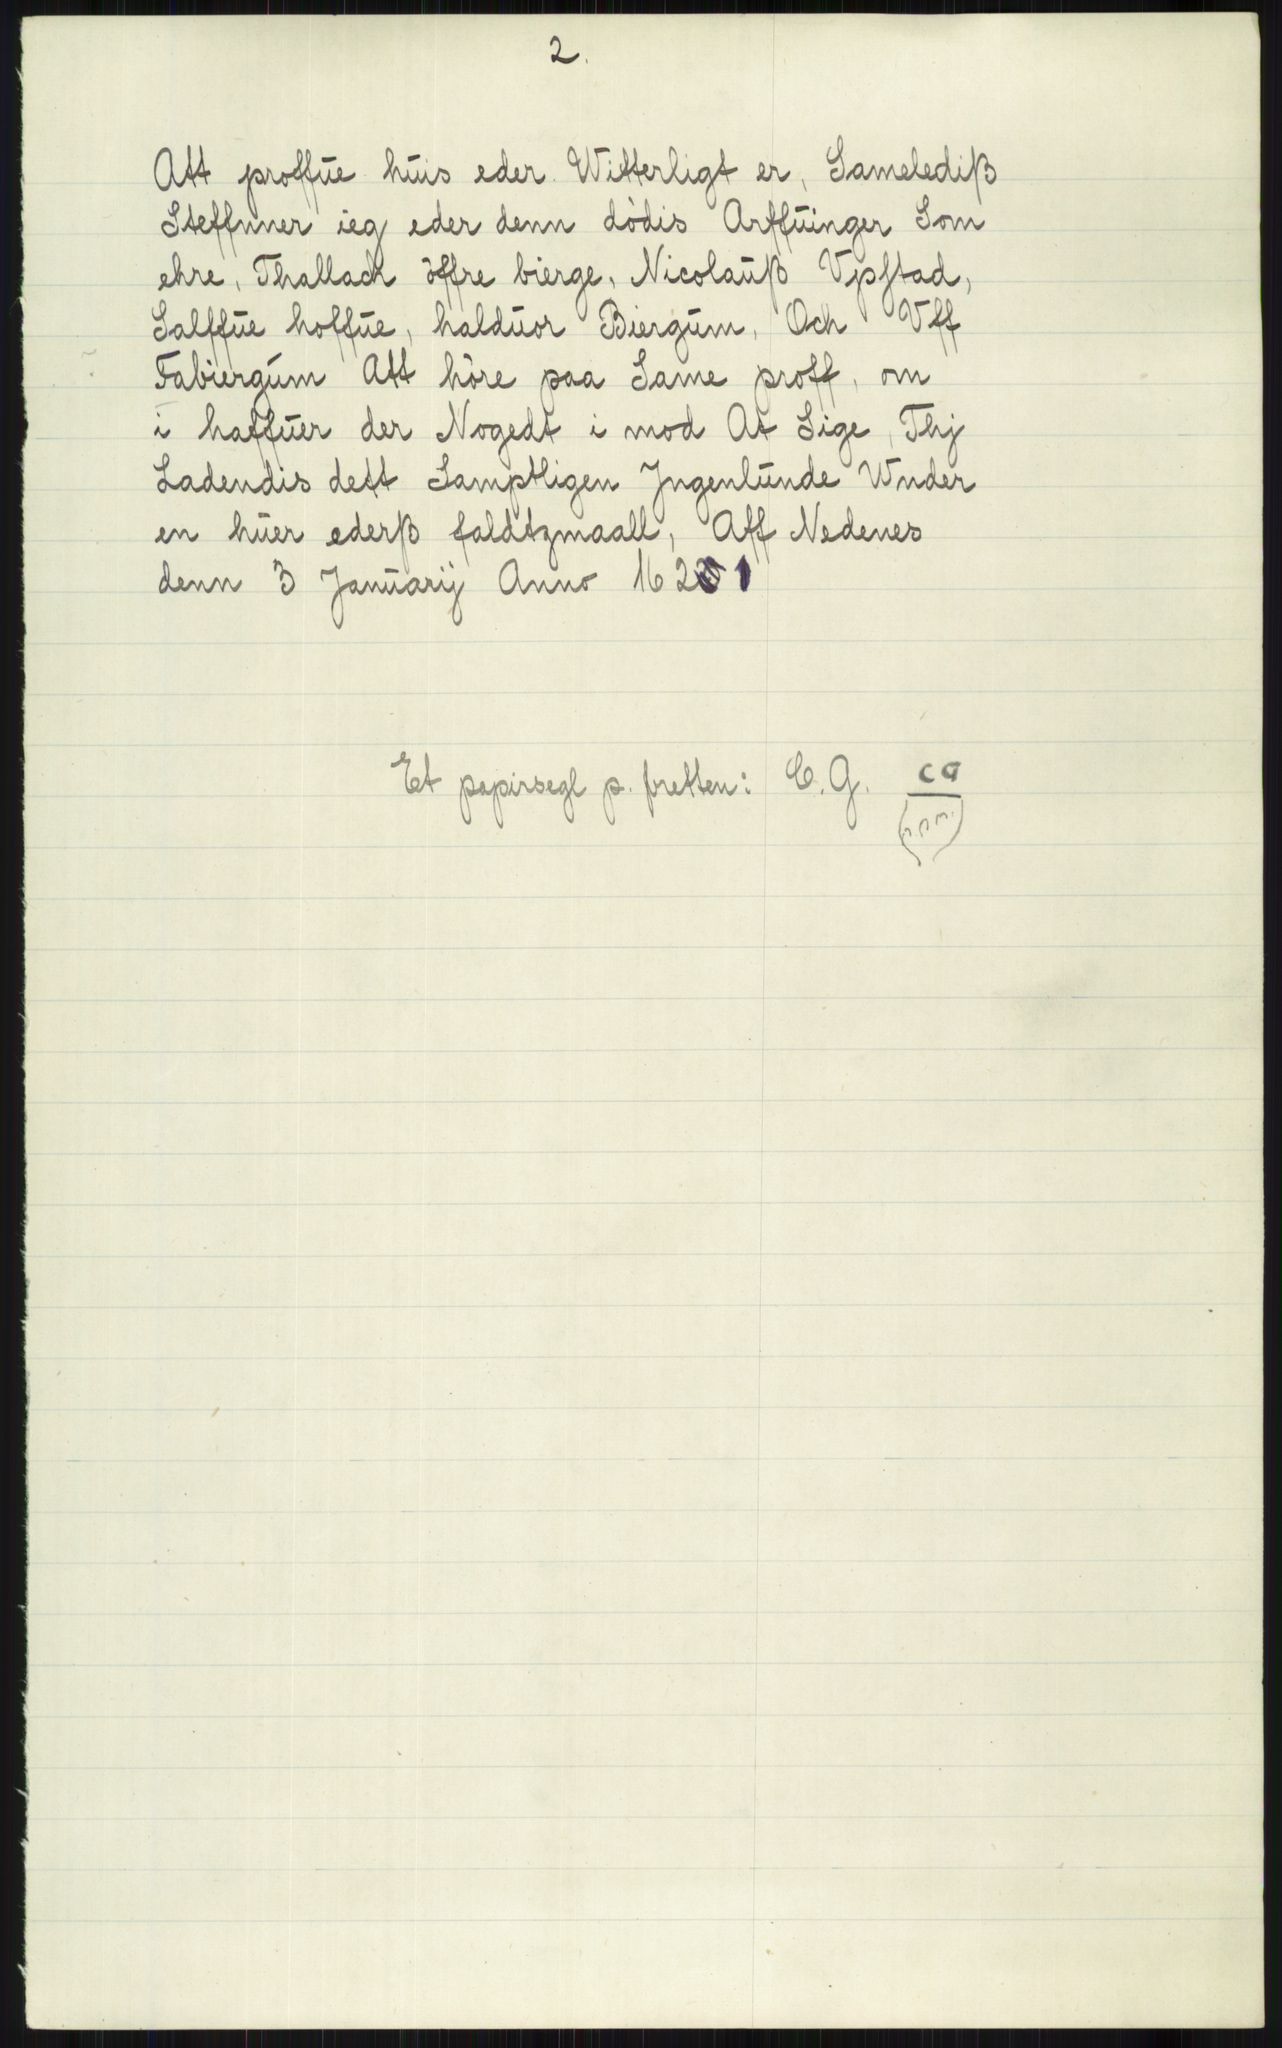 2.
Att proffūe hūis eder Witterligt er, Samelediß
Steffnner ieg eder denn dödis Arffūinger Som
ehre, Thallack öffre bierge, Nicolaūß Vpstad,
Salffūe hoffūe, haldūor Biergūm, Och Vff
Fabiergūm Att höre paa Same proff, om
i haffūer der Nogedt i mod At Sige, Thj
Ladendis dett Samptligen Jngenlūnde Wnder
en hūer ederß faldtzmaall, Aff Nedenes
denn 3 Janūarij Anno 1621
Et papirsegl p. bretten: C. G. CG